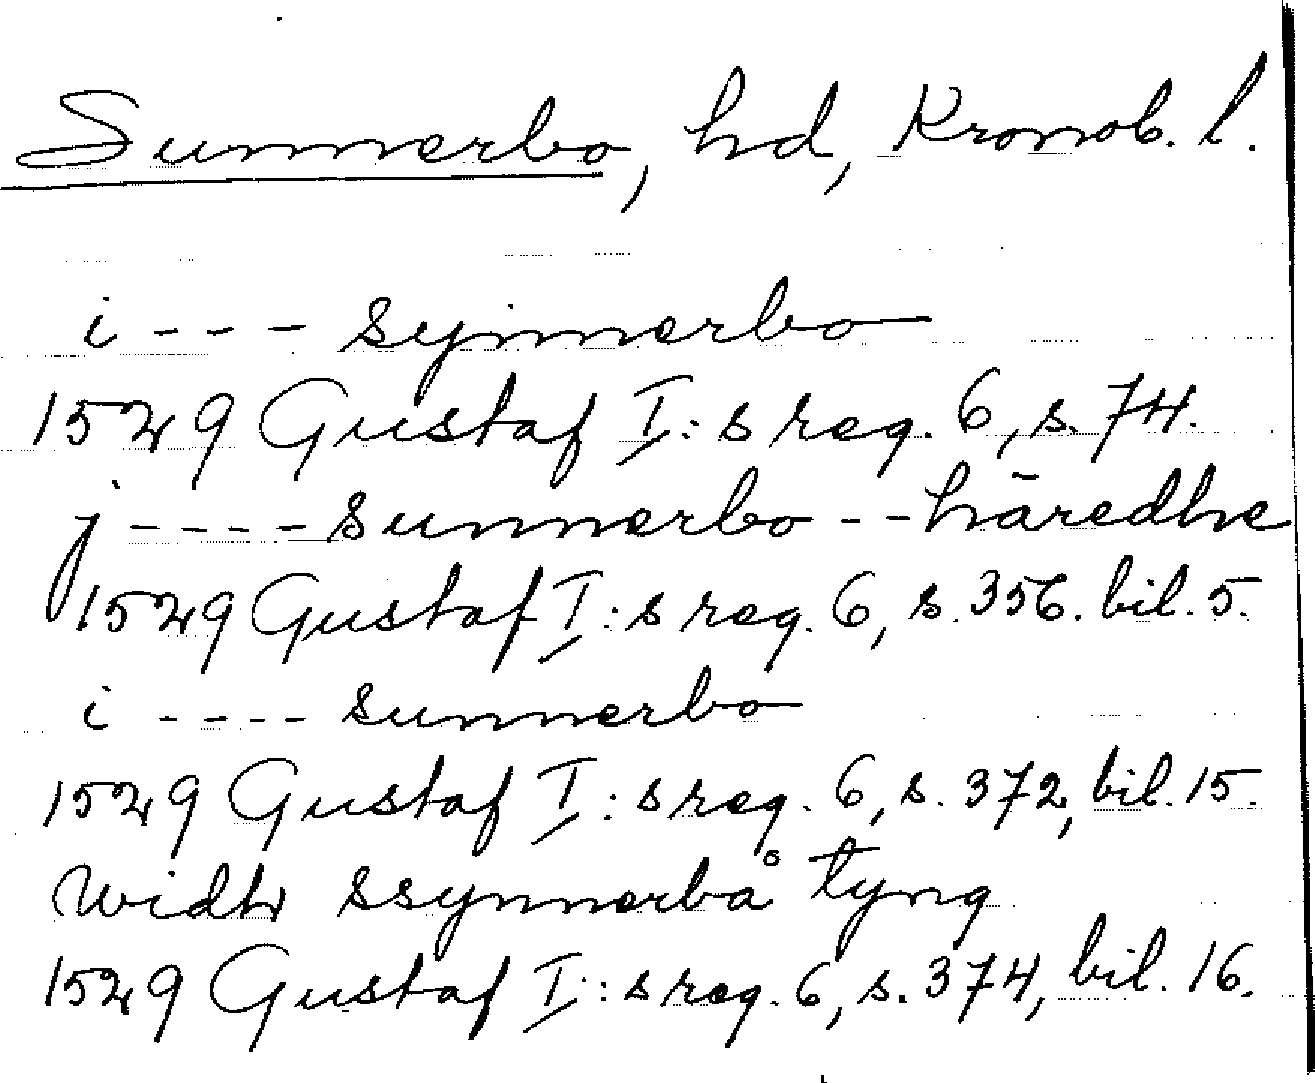 Sunnerbo, hd, Kronob. l.
i - - - synnerbo
1529 Gustaf I:s reg. 6, s. 74.
j - - - - sunnerbo - - häredhe
1529 Gustaf I:s reg. 6, s. 356. bil. 5.
i - - - - sunnerbo
1529 Gustaf I:s reg. 6, s. 372, bil. 15.
widh ssynnerbå tyng
1529 Gustaf I:s reg. 6, s. 374, bil. 16.